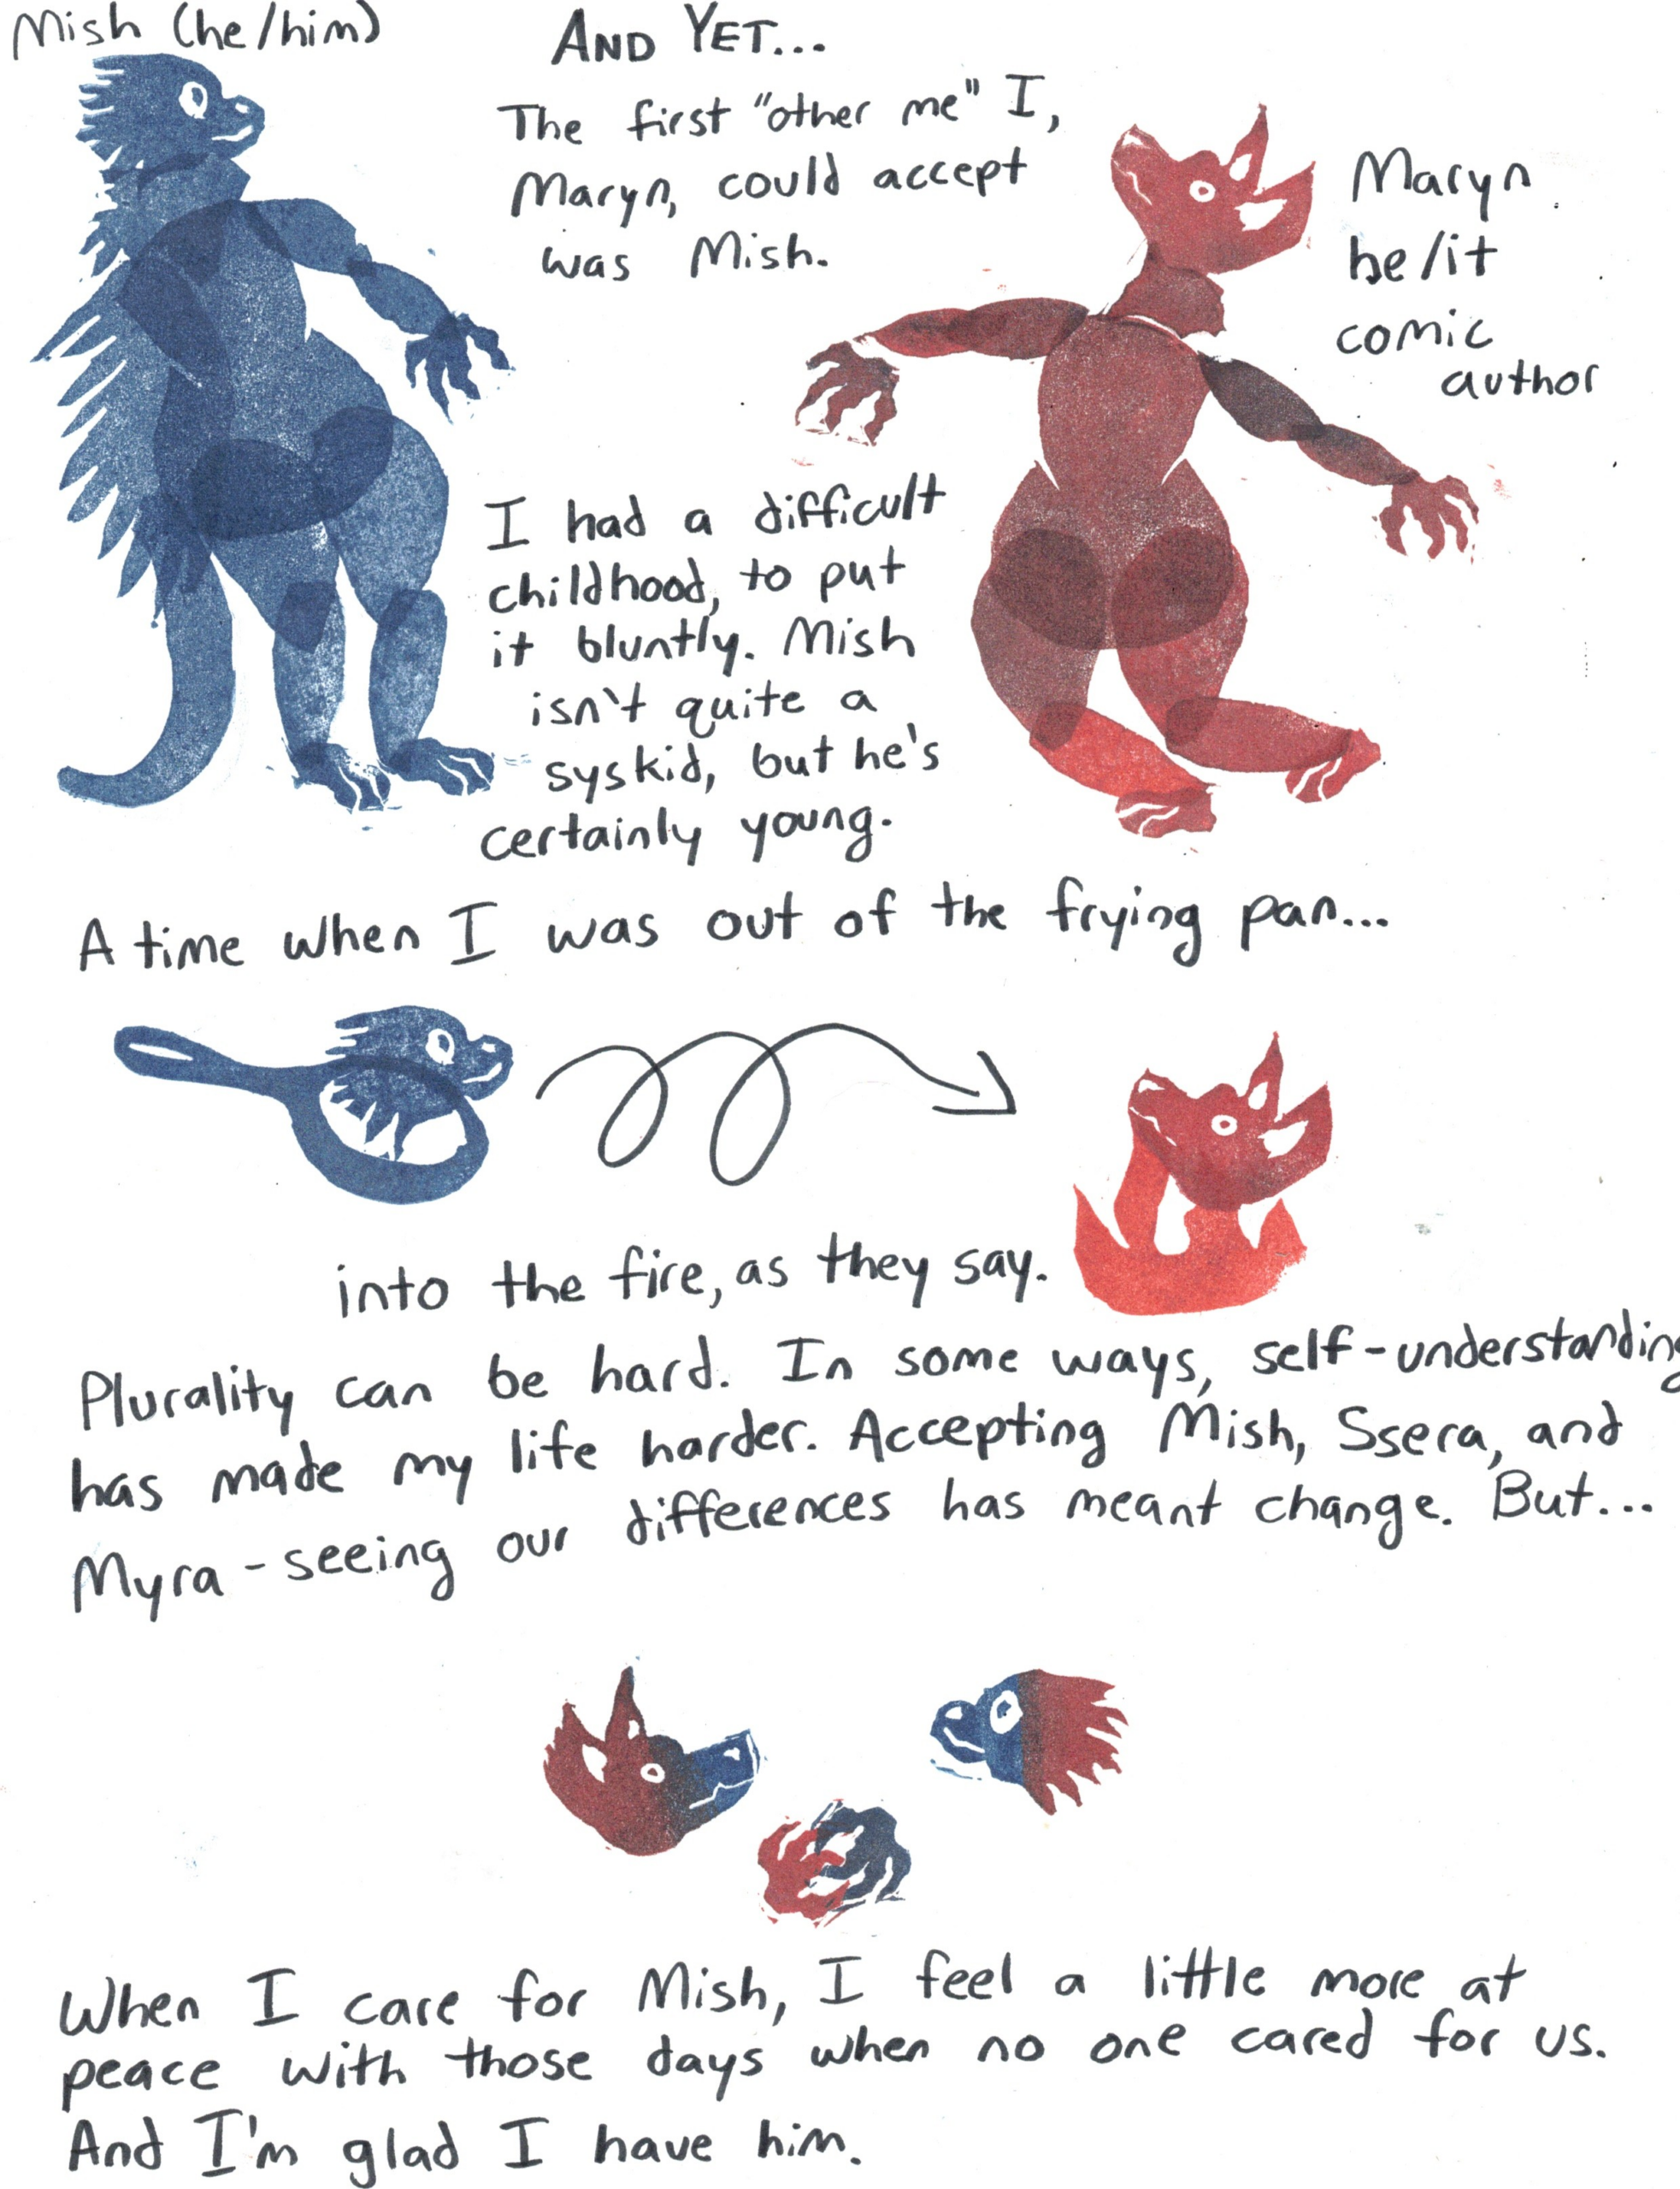 Mish (he/him)
AND YET...
The first "other me" I,
Maryn, could accept
was Mish.
Maryn
he/it
comic
author
I had a difficult
childhood, to put
it bluntly. Mish
isn't quite a
syskid, but he's
certainly young.
A time when I was out of the frying pan...
into the fire, as they say.
Plurality can be hard. In some ways, self-understanding
has made my life harder. Accepting Mish, Ssera, and
Myra - seeing our differences has meant change. But...
When I care for Mish, I feel a little more at
peace with those days when no one cared for us.
And I'm glad I have him.